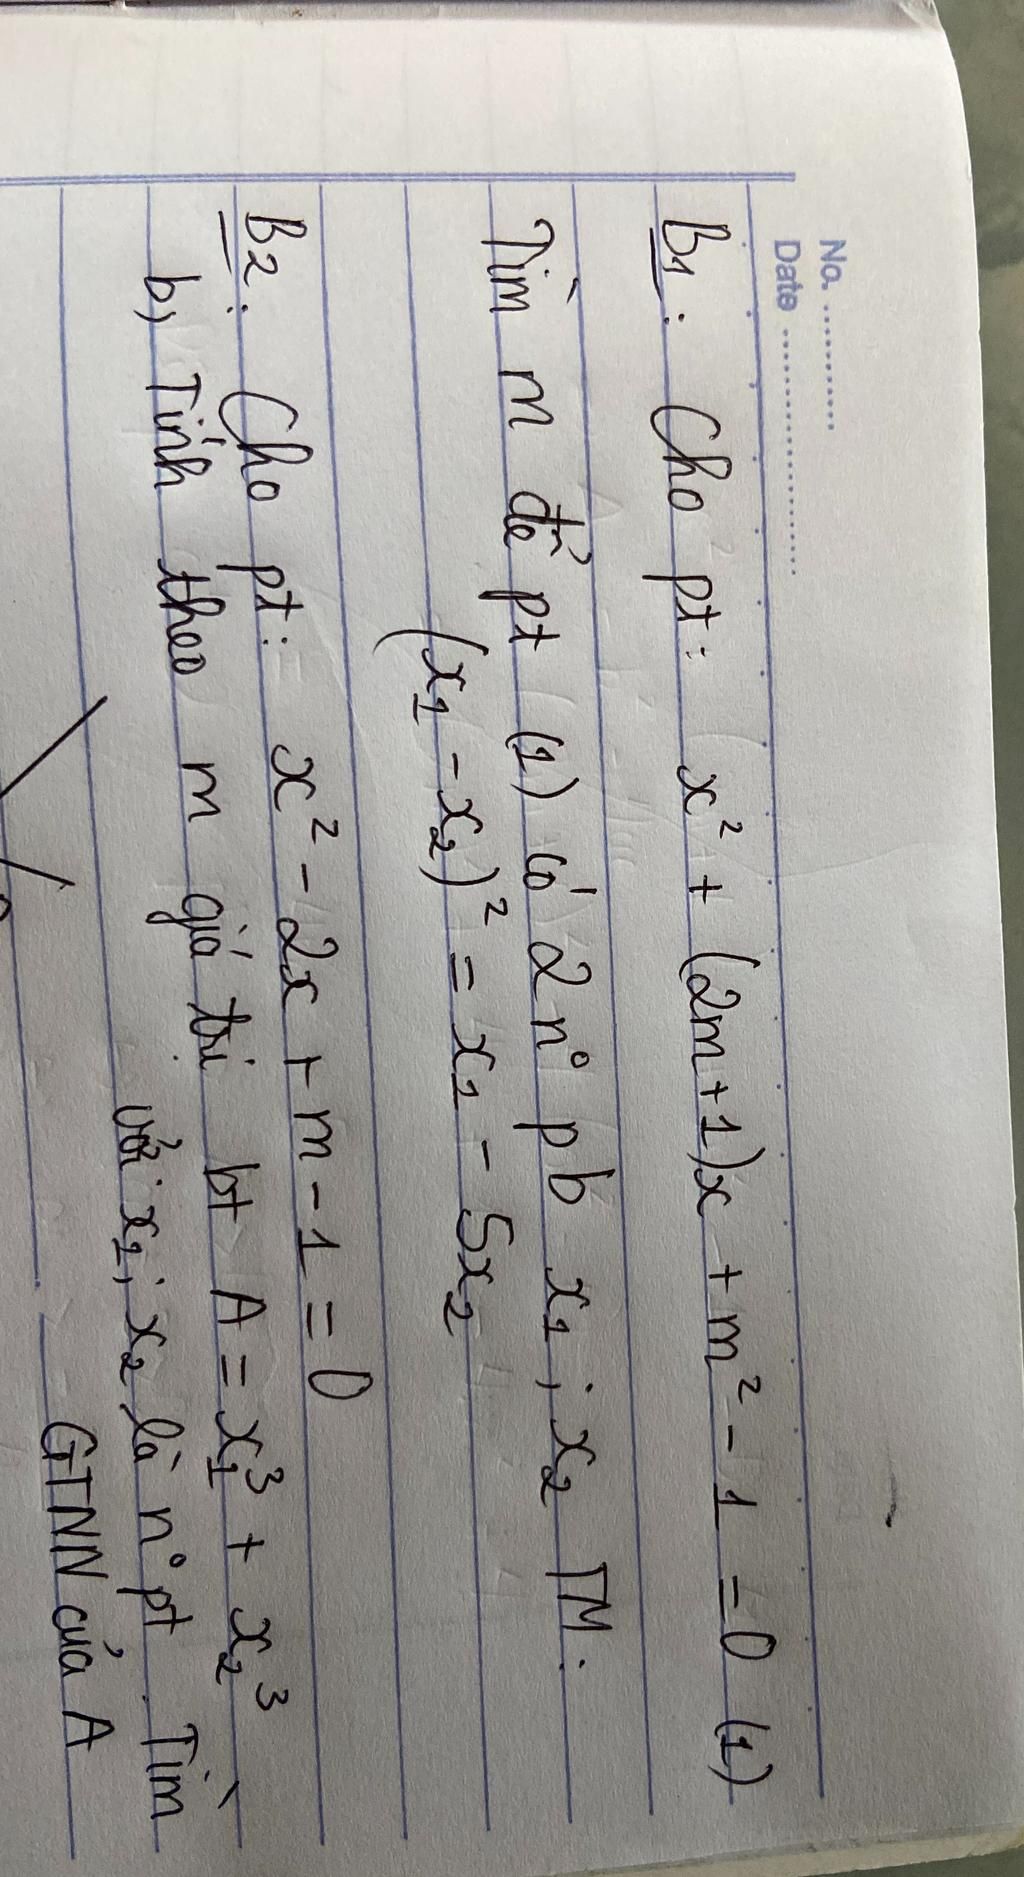 No. ............
Date ........................
B1: Cho pt: x² + (2m+1)x + m² - 1 = 0 (1)
Tìm m để pt (1) có 2 n° pb x₁; x₂ TM:
(x₁ - x₂)² = x₁ - 5x₂
B2: Cho pt: x² - 2x + m - 1 = 0
b) Tính theo m giá trị bt A = x₁³ + x₂³
với x₁; x₂ là n° pt. Tìm
GTNN của A